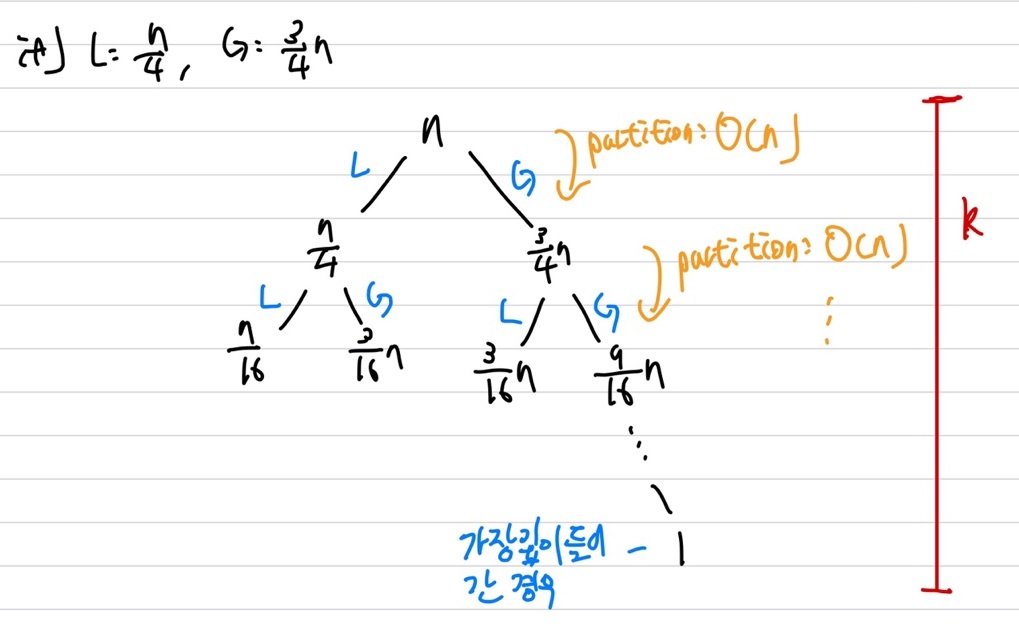 예) L = n/4, G = 3/4 n
n
partition: O(n)
L G
n/4 3/4 n
partition: O(n)
L G L G
n/16 3/16 n 3/16 n 9/16 n
⋮
⋱
가장 깊이 들어 - 1
간 경우
k